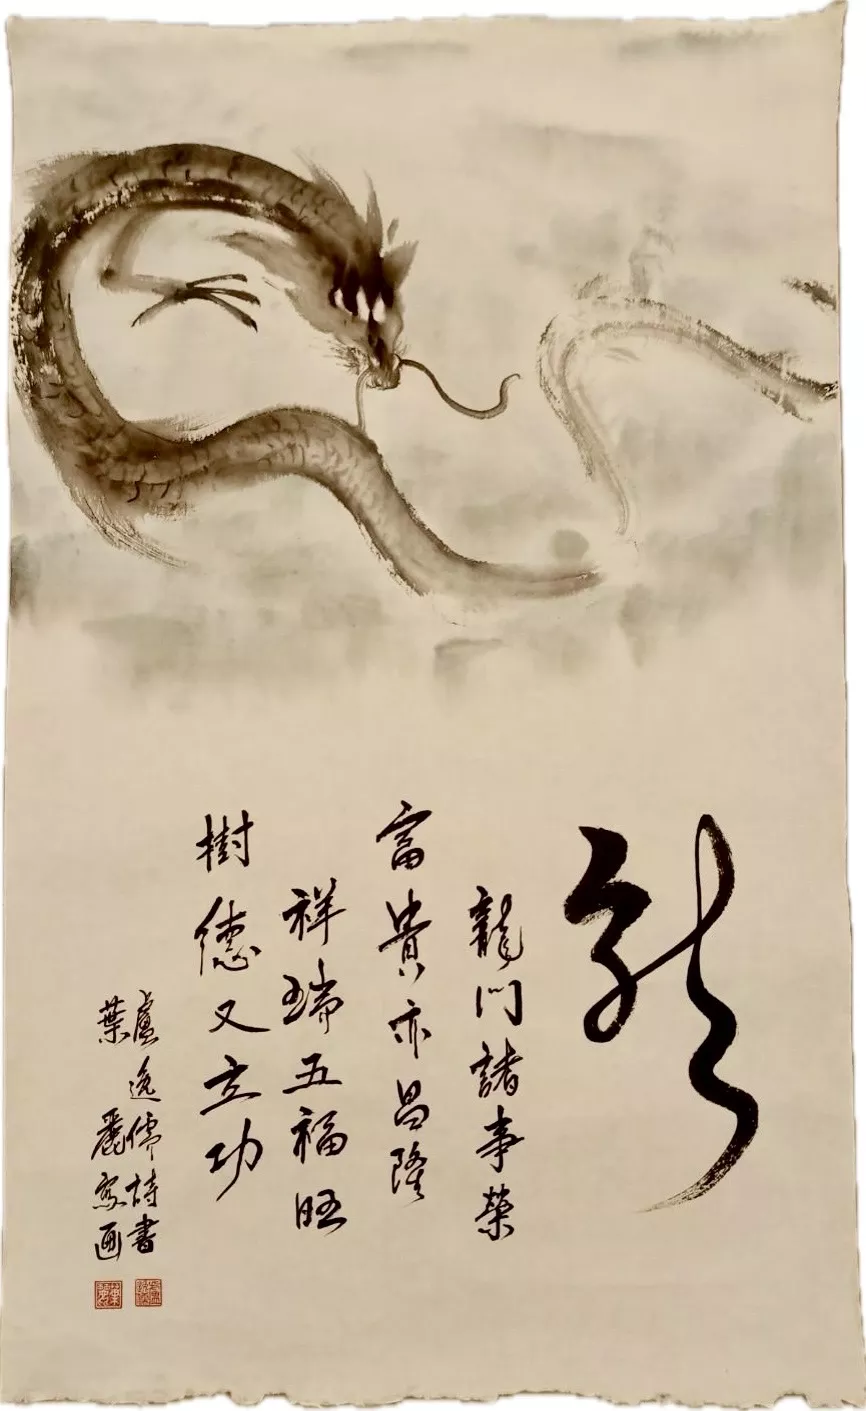 龍
龍門諸事榮
富貴亦昌隆
祥瑞五福旺
樹德又立功
盧逸儒詩書
葉麗寫画